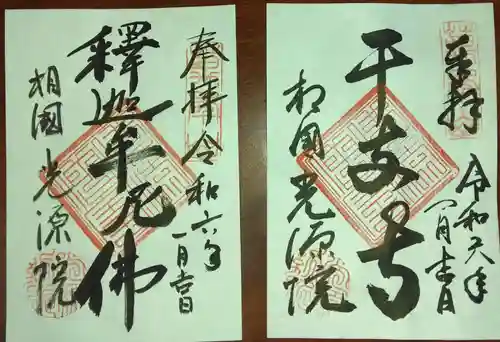 奉拝
令和六年
一月吉日
干支寺
相国 光源院
奉拝
令和六年
一月吉日
釋迦牟尼佛
相國 光源院